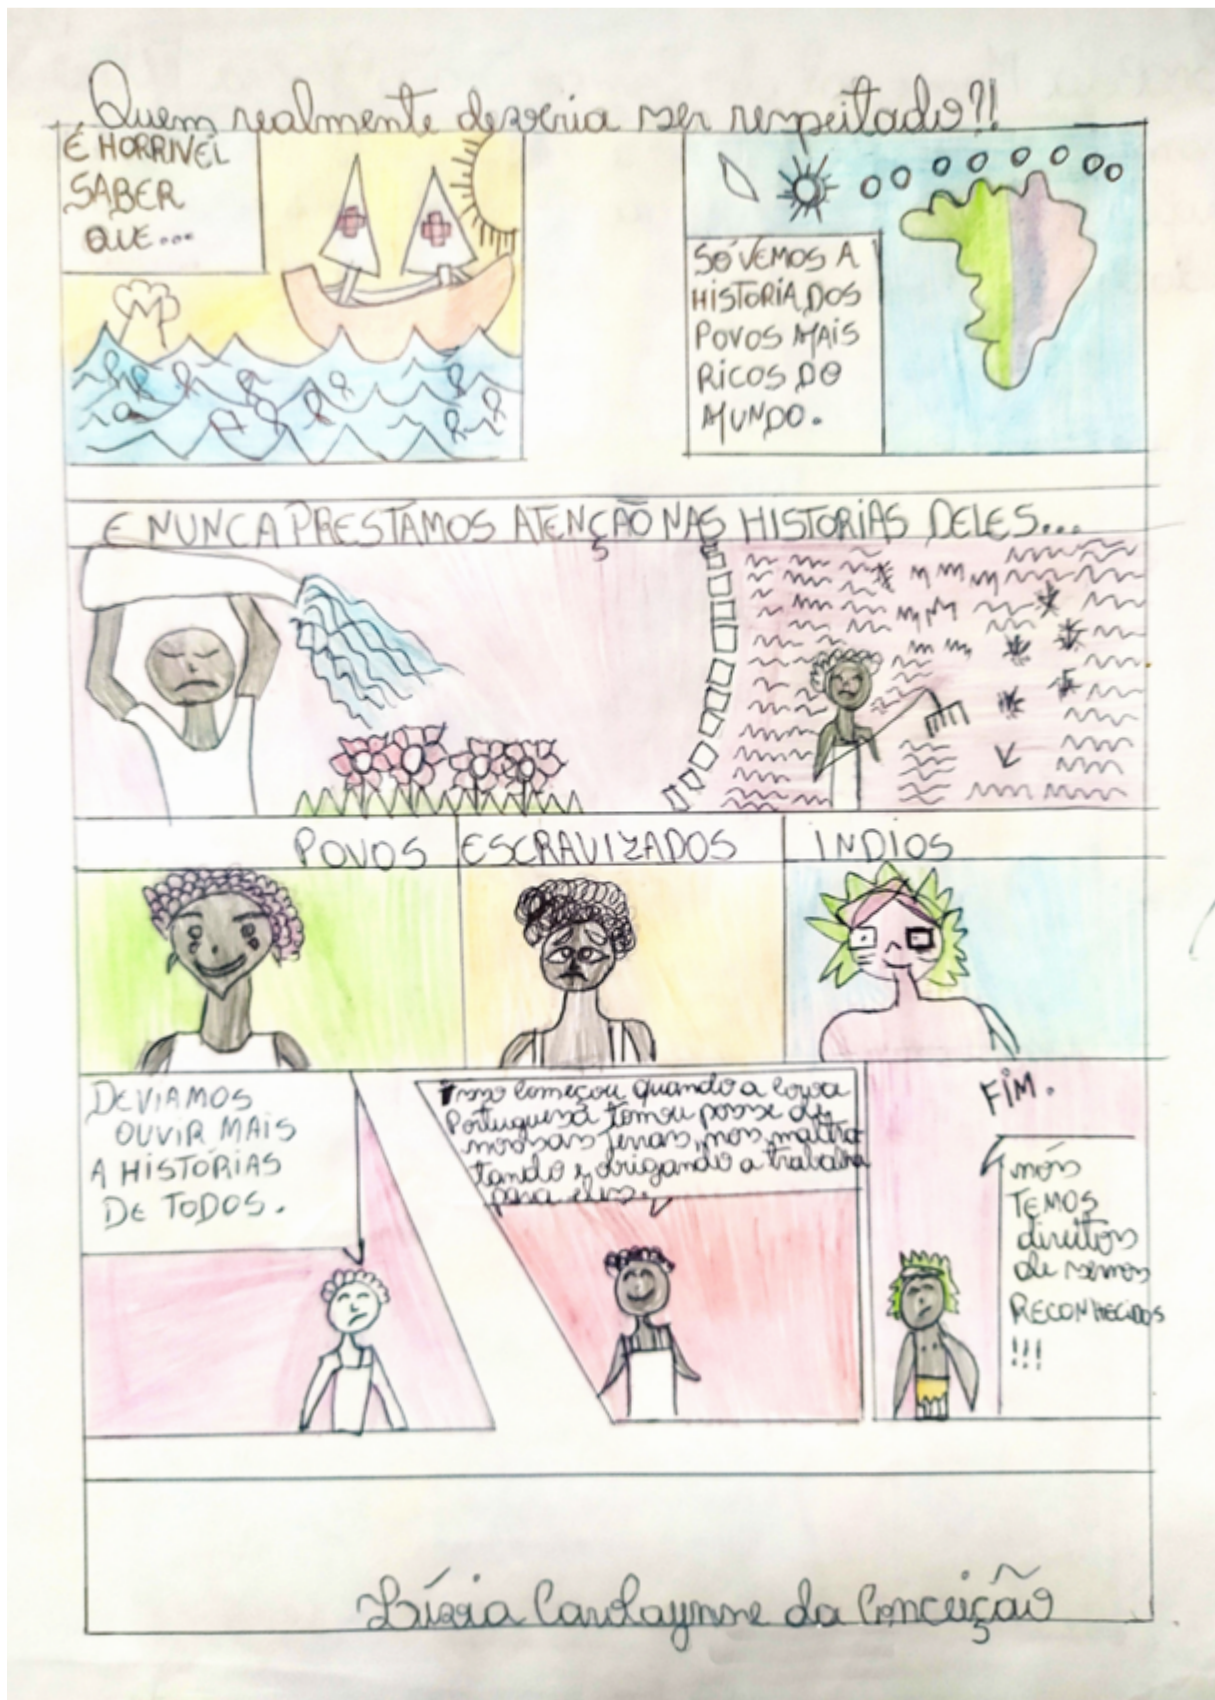 Quem realmente deveria ser respeitado?!!
É HORRIVEL
SABER
QUE...
SÓ VEMOS A
HISTORIA DOS
POVOS MAIS
RICOS DO
MUNDO.
E NUNCA PRESTAMOS ATENÇÃO NAS HISTORIAS DELES...
POVOS ESCRAVIZADOS INDIOS
DEVIAMOS
OUVIR MAIS
A HISTÓRIAS
DE TODOS.
Isso começou quando a coroa
Portuguesa tomou posse de
nossas terras, nos maltra
tando e obrigando a trabalha
para eles.
FIM.
nós
TEMOS
direitos
de sermos
RECONHECIDOS
!!!
Lízia Carolaynne da Conceição